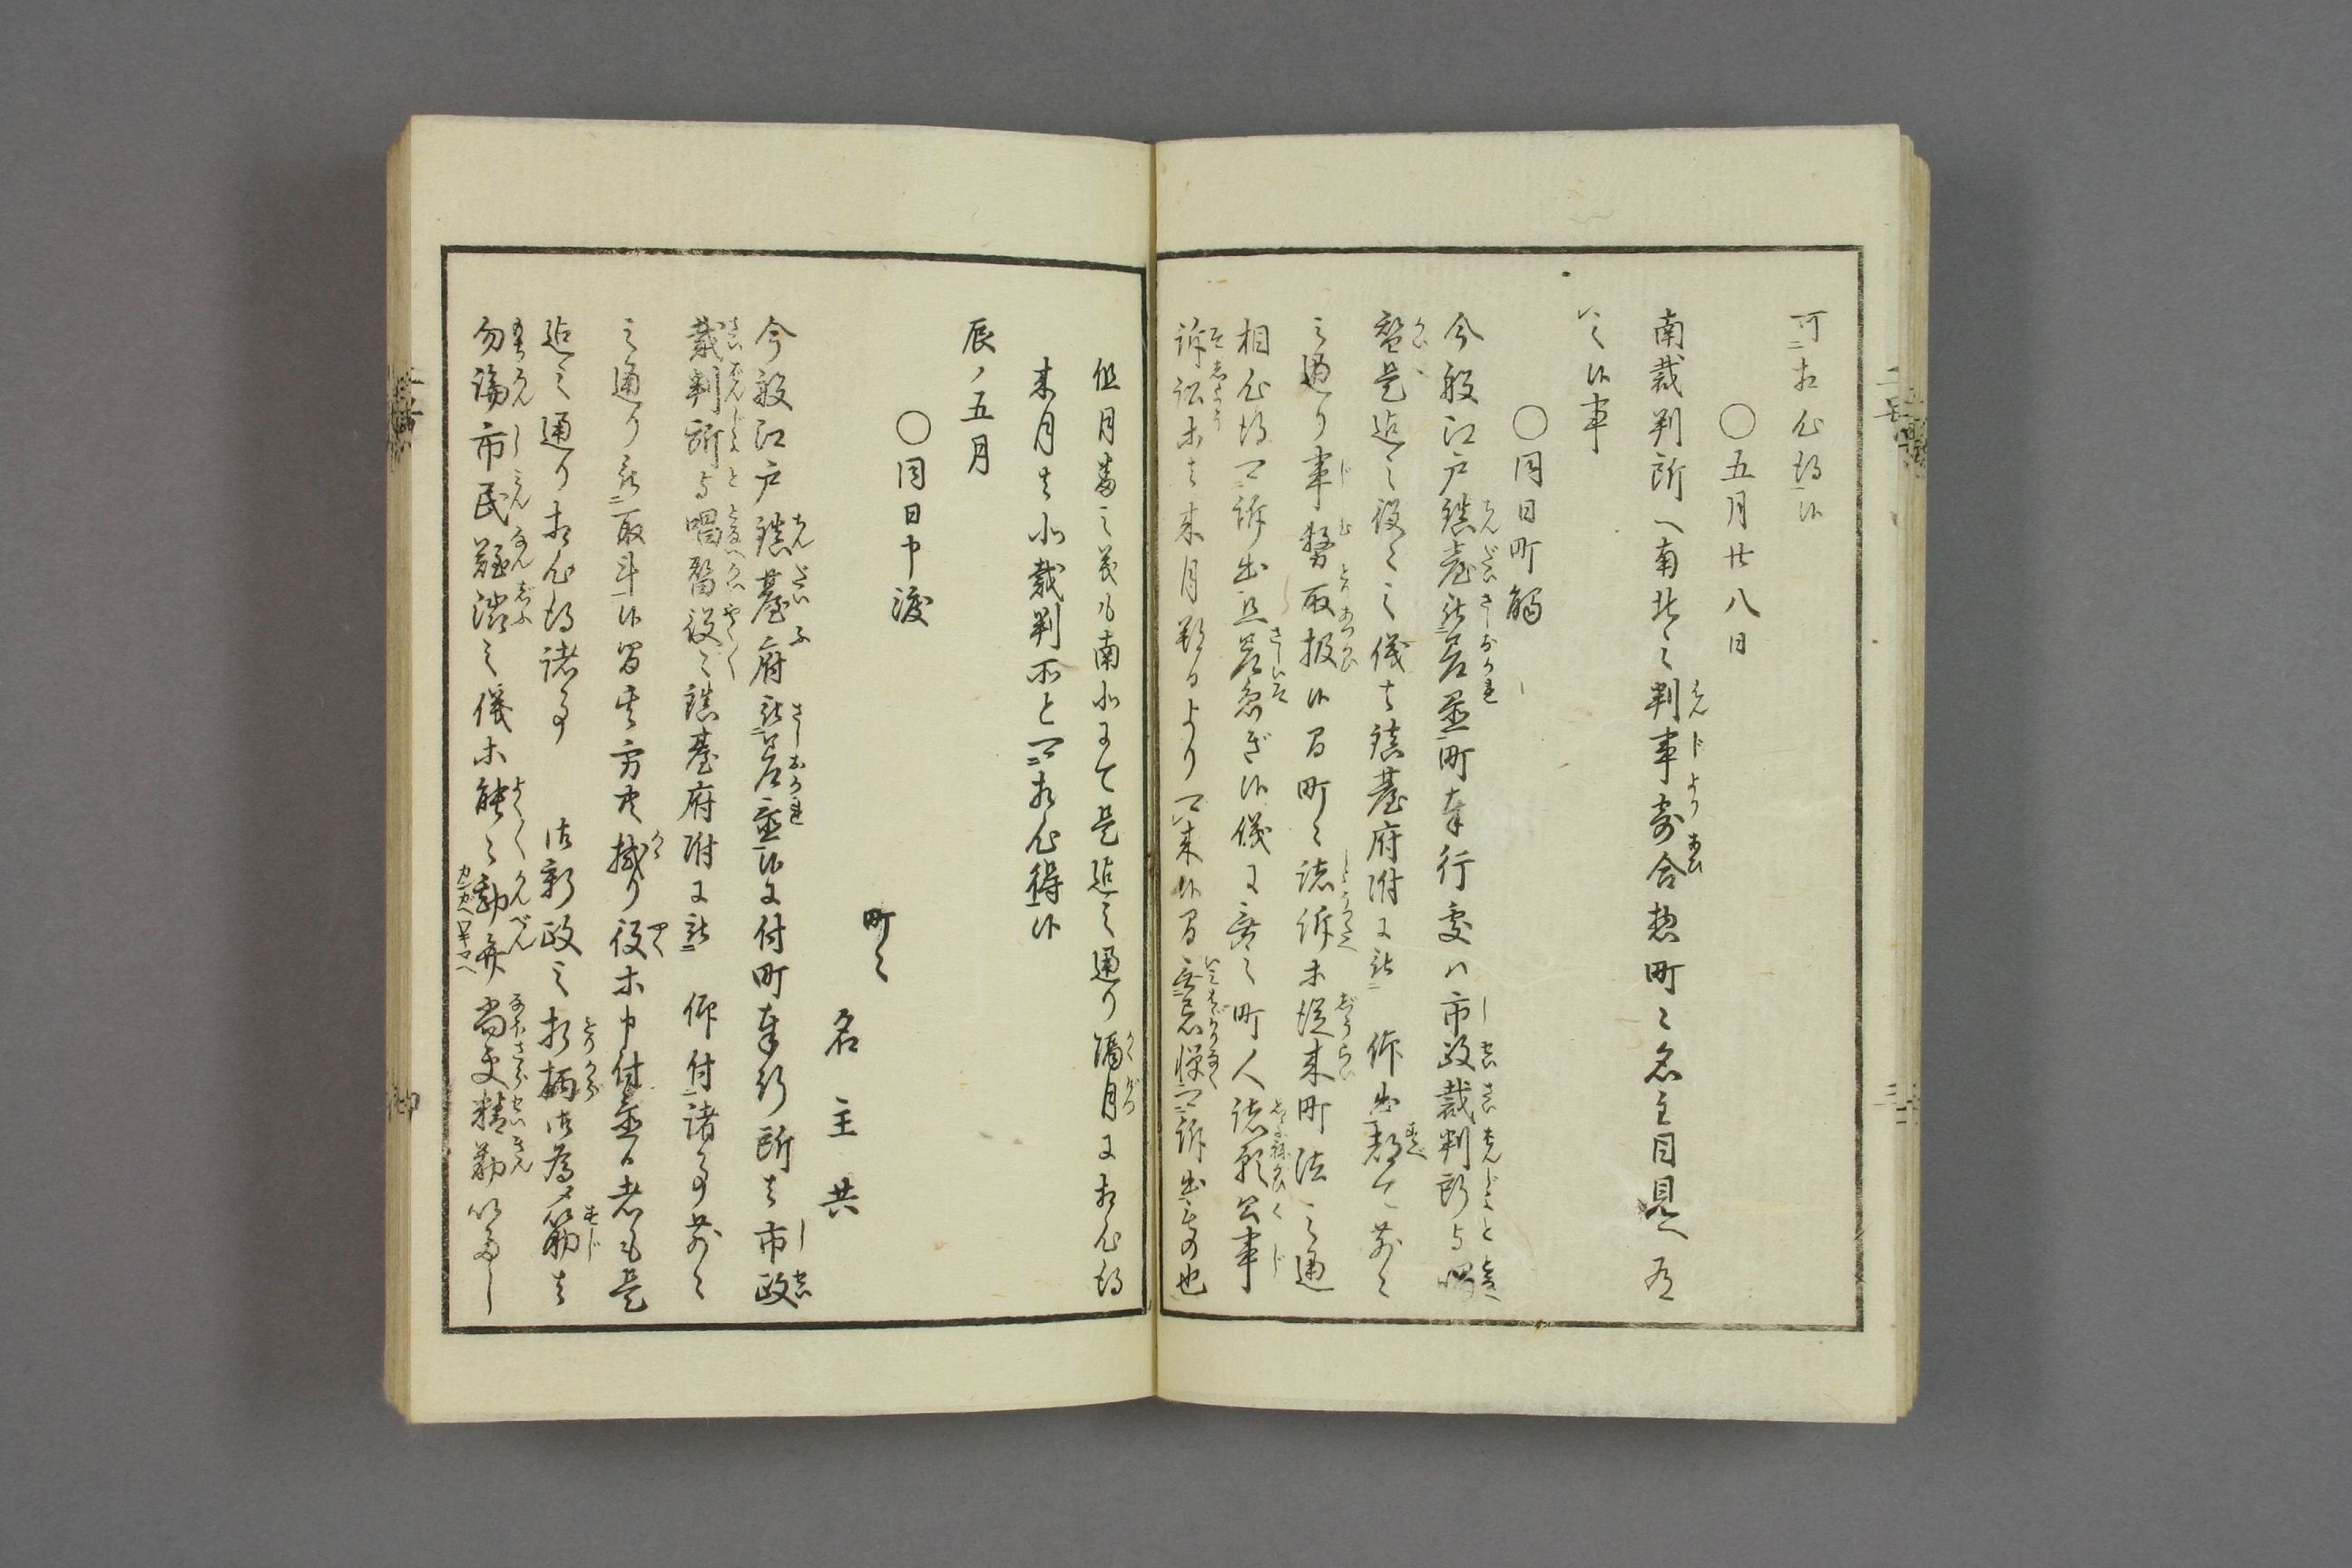 可相心得候
○五月廿八日
南裁判所へ南北之判事寄合惣町々名主目見へ有
之候事
○同日町觸
今般江戸鎮臺被差置町奉行處ハ市政裁判所与唱
替是迄之役々之儀者鎮臺府附ニ被仰出都て前々
之通り事務取扱候間町々諸訴等従来町法之通
相心得可訴出且差急ぎ候儀ニ無之町人諸願公事
訴訟等者来月朔日より可来候間無忌憚可訴出もの也
但月番之義も南北にて是迄之通り隔月ニ相心得
来月者北裁判所と可相心得候
辰ノ五月
○同日申渡
町々
名主共
今般江戸鎮臺府被差置候に付町奉行所者市政
裁判所与唱替役々鎮臺府附ニ被仰付諸事前々
之通り被取斗候間其方共掛り役等申付置候者も是
迄之通り相心得諸事御新政之折柄御為メ筋者
勿論市民難澁之儀等能々勘弁尚更精勤いたし